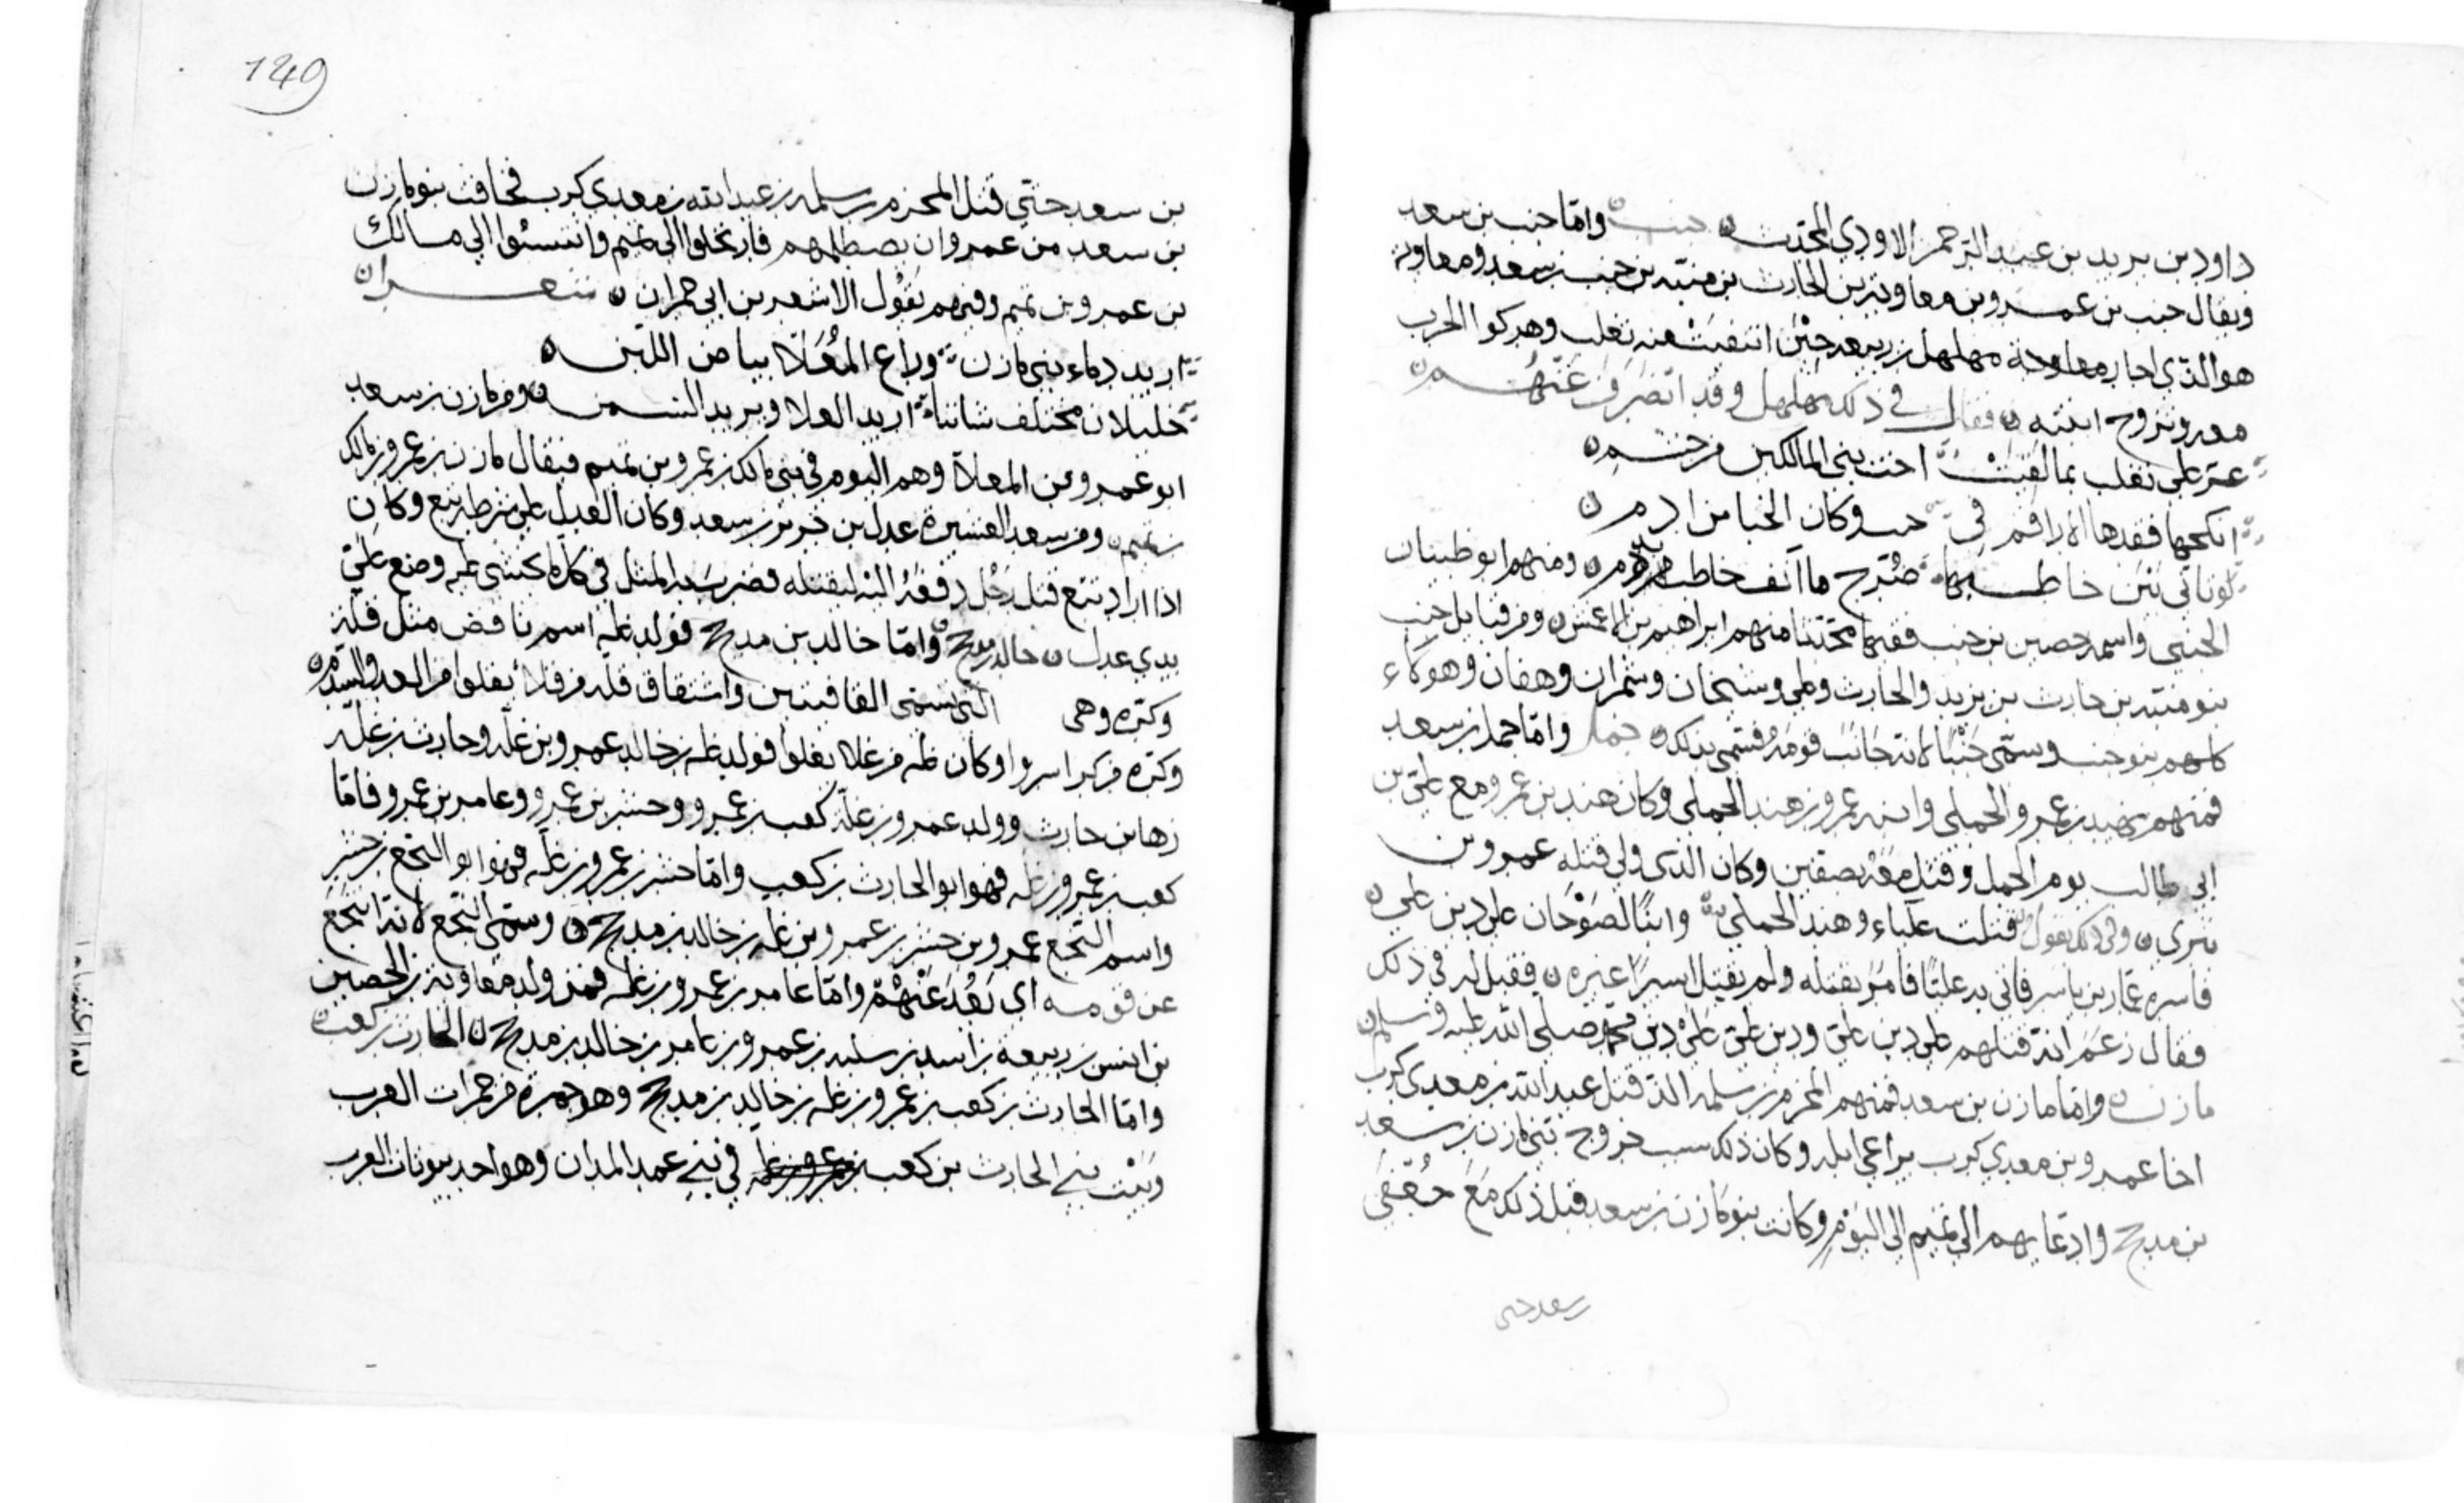 داود بن يريد بن عبد الرحمن الاودي المحدث ن جنب ن واما جنب بن سعد
ويقال جنب بن عمرو بن معاوية بن الحارث بن منبه بن جنب بن سعد ومعاوية
هو الذي اجار معاوية مهلهل بن ربيعه حين انتفت منه تغلب وهم كوا الحرب
معه وتزوج ابنته ن فقال في ذلك مهلهل وقد انصرف عنهم ن
عز على تغلب بما لقيت اخت بني المالكين من جشم ن
انكحها فقدها الاراقم في جنب وكان الخبا من ادم ن
لوباتي نين جا خاطبها ضرج ما آنف خاطب بدم ن ومنهم ابو ظبيان
الجنبي واسمه حصين بن جنب فقيها محدثا منهم ابراهيم بن الاعمش ن ومن قبايل جنب
بنو منبه بن حارث بن يزيد والحارث وعلي وسنحان وشمران وهفان وهوكاء
كلهم بنو جنب وسمي جنبا لانه جانب قومه فسمي بذلك ن جمل واما جمل بن سعد
فمنهم هند بن عمرو الجملي وابنه عمرو بن هند الجملي وكان هند بن عمرو مع علي بن
ابي طالب يوم الجمل وقتل معه بصفين وكان الذي ولي قتله عمرو بن
يثري ن وفي ذلك يقول قتلت علباء وهند الجملي وابنا لصوحان على دين علي ن
فاسره عمار بن ياسر فاتى به عليا فامر بقتله ولم يقتل اسيرا غيره ن فقيل له في ذلك
فقال زعم انه قتلهم على دين علي ودين علي على دين محمد صلى الله عليه وسلم ن
مازن ن واما مازن بن سعد فمنهم المخزم بن سلمه الذي قتل عبد الله بن معدي كرب
اخا عمرو بن معدي كرب براعي ابله وكان ذلك سبب خروج بني مازن بن سعد
بن مدحج وادعايهم الى تميم الى اليوم وكانت بنو مازن بن سعد قبل ذلك مع جعفي
بن سعد حتى
149
بن سعد حتي قتل المخزم بن سلمه بن عبد الله بن معدي كرب فخافت بنو مازن
بن سعد من عمرو ان يصطلمهم فارتحلوا الى تميم وانتسبوا الي مالك
بن عمرو بن تميم وفيهم يقول الاشعر بن ابي حمران ن شعر ن
اريد دماء بني مازن وراع المعلا بياض اللبن ن
خليلان مختلف شاننا اريد العلا ويريد السمن ن ومن مازن بن سعد
ابو عمرو بن المعلا وهم اليوم في بني مالك بن عمرو بن تميم فيقال مازن بن عمرو بن مالك
بن تميم ن ومن سعد العشيرة عدل بن جزء بن سعد وكان العدل على شرطه تبع وكان
اذا اراد تبع قتل رجل دفعه اليه ليقتله فضرب به المثل في كل ما يخشى عليه وضع علي
يدي عدل ن خالد بن مدحج ن واما خالد بن مدحج فولد عله اسم ناقص مثل قلة
وكره وهي التي تسمى القافيتين واشتقاق قله من قلا يقلوا من العدو والشد ن
وكره من كر اسروا وكان عله من علا يعلوا فولد عله بن خالد عمرو بن عله وحارث بن عله
رها بن حارث وولد عمرو بن عله كعب بن عمرو وجسر بن عمرو وعامر بن عمرو فاما
كعب بن عمرو بن عله فهو ابو الحارث بن كعب واما جسر بن عمرو بن عله فهو ابو النخع بن جسر
واسم النخع عمرو بن جسر بن عمرو بن عله بن خالد بن مدحج ن وسمي النخع لانه انتخع
عن قومه اي بعد عنهم واما عامر بن عمرو بن عله فمن ولده معاوية بن الحصين
بن انس بن ربيعة بن اسد بن سلبه بن عمرو بن عامر بن خالد بن مدحج ن الحارث بن كعب ن
واما الحارث بن كعب بن عمرو بن عله بن خالد بن مدحج وهو جمرة من جمرات العرب
وبيت بني الحارث بن كعب بن عمرو بن عله في بني عبد المدان وهو احد بيوتات العرب